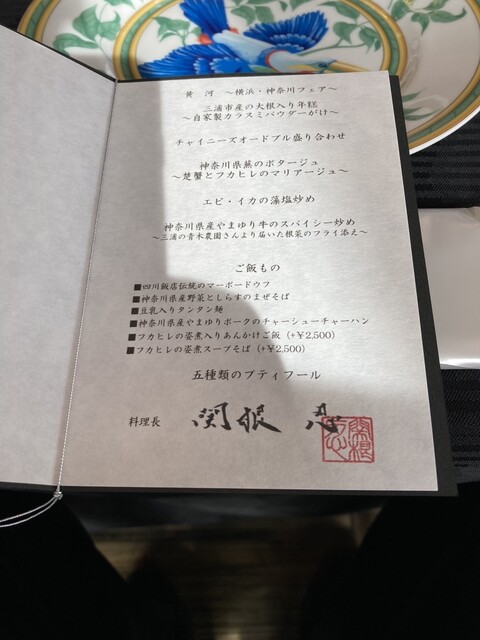 黄 河 ～横浜・神奈川フェア～
三浦市産の大根入り年糕
～自家製カラスミパウダーがけ～
チャイニーズオードブル盛り合わせ
神奈川県蕪のポタージュ
～楚蟹とフカヒレのマリアージュ～
エビ・イカの藻塩炒め
神奈川県産やまゆり牛のスパイシー炒め
～三浦の青木農園さんより届いた根菜のフライ添え～
ご飯もの
■四川飯店伝統のマーボードウフ
■神奈川県産野菜としらすのまぜそば
■豆乳入りタンタン麺
■神奈川県産やまゆりポークのチャーシューチャーハン
■フカヒレの姿煮入りあんかけご飯（+￥2,500）
■フカヒレの姿煮スープそば（+￥2,500）
五種類のプティフール
料理長 関根 忍